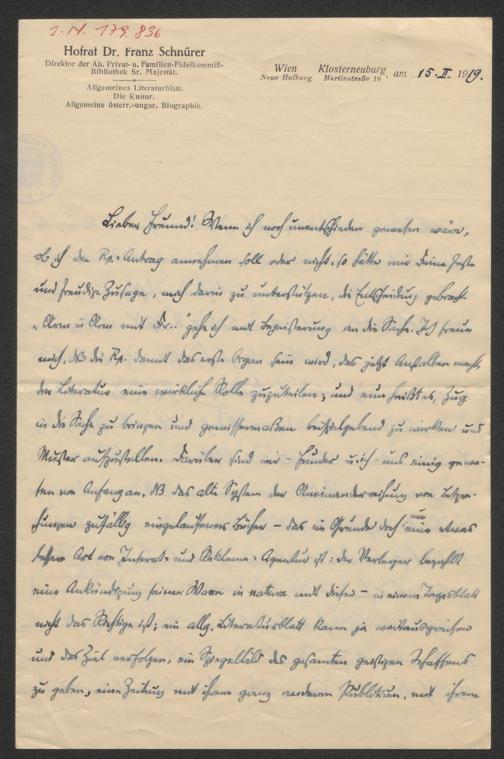 I. N. 179.836
Hofrat Dr. Franz Schnürer
Direktor der Ah. Privat- u. Familien-Fideikommiß-
Bibliothek Sr. Majestät.
Allgemeines Literaturblatt.
Die Kultur.
Allgemeine österr.-ungar. Biographie.
Wien Klosterneuburg, am 15. II. 1919.
Neue Hofburg Martinstraße 16
Lieber Freund! Wenn ich noch unentschieden gewesen wäre,
ob ich den Rp.-Antrag annehmen soll oder nicht, so hätte mir Deine feste
und freudige Zusage, mich darin zu unterstützen, die Entscheidung gebracht.
„Arm in Arm mit Dir.." gehe ich mit Begeisterung an die Sache. Ich freue
mich, daß die Rp. damit das erste Organ sein wird, das jetzt Anstalten macht,
der Literatur eine wirkliche Rolle zuzuteilen; und nun heißt es, Zug
in die Sache zu bringen und gewissermaßen beispielgebend zu wirken und
Muster aufzustellen. Darüber sind wir – Funder u. ich – uns einig gewe-
sen von Anfang an, daß das alte System der Aneinanderreihung von Bespre-
chungen zufällig eingelaufener Bücher – das im Grunde doch nur eine etwas
bessere Art von Inserate- und Reklame-Agentur ist: der Verleger bezahlt
eine Ankündigung seiner Ware in natura mit dieser – in einem Tagesblatt
nicht das Richtige ist; ein allg. Literaturblatt kann ja weitausgreifen
und das Ziel verfolgen, ein Spiegelbild des gesamten geistigen Schaffens
zu geben, eine Zeitung mit ihrem ganz anderen Publikum, mit ihrem